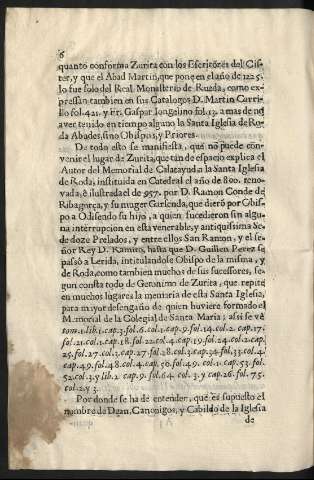 6
quanto conforma Zurita con los Escritores del Cis-
ter, y que el Abad Martin, que pone en el año de 1225.
lo fue solo del Real Monasterio de Rueda, como ex-
pressan tambien en sus Catalogos D. Martin Carri-
llo fol. 421. y Fr. Gaspar Iongelino fol. 13. a mas de no
aver tenido en tiempo alguno la Santa Iglesia de Ro-
da Abades, sino Obispos, y Priores.
De todo esto se manifiesta, que no puede con-
venir el lugar de Zurita, que tan de espacio explica el
Autor del Memorial de Calatayud a la Santa Iglesia
de Roda, instituida en Catedral el año de 800. reno-
vada, è ilustrada el de 957. por D. Ramon Conde de
Ribagorça, y su muger Garsenda, que dierõ por Obis-
po a Odisendo su hijo, a quien sucedieron sin algu-
na interrupcion en esta venerable, y antiquissima Se-
de doze Prelados, y entre ellos San Ramon, y el se-
ñor Rey D. Ramiro, hasta que D. Guillen Perez se
passò a Lerida, intitulandose Obispo de la misma, y
de Roda, como tambien muchos de sus sucessores, se-
gun consta todo de Geronimo de Zurita, que repite
en muchos lugares la memoria de esta Santa Iglesia,
para mayor desengaño de quien huviere formado el
Memorial de la Colegial de Santa Maria; assi se vè
tom. 1. lib. 1. cap. 3. fol. 6. col. 1. cap. 9. fol. 14. col. 2. cap. 17.
fol. 21. col. 1. cap. 18. fol. 22. col. 4. cap. 19. fol. 24. col. 2. cap.
25. fol. 27. col. 3. cap. 27. fol. 28. col. 3. cap. 32. fol. 33. col. 4.
cap. 49. fol. 48. col. 4. cap. 50. fol. 49. col. 1. cap. 53. fol.
52. col. 3. y lib. 2. cap. 9. fol. 64. col. 3. y cap. 26. fol. 75.
col. 2. y 3.
Por donde se ha de entender, que es supuesto el
nombre de Dean, Canonigos, y Cabildo de la Iglesia
de